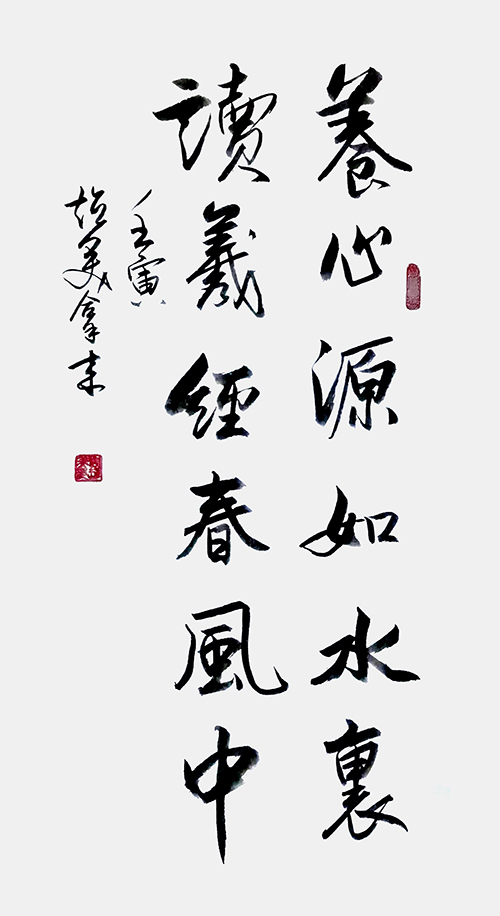 養心源如水裏
讀羲經春風中
壬寅